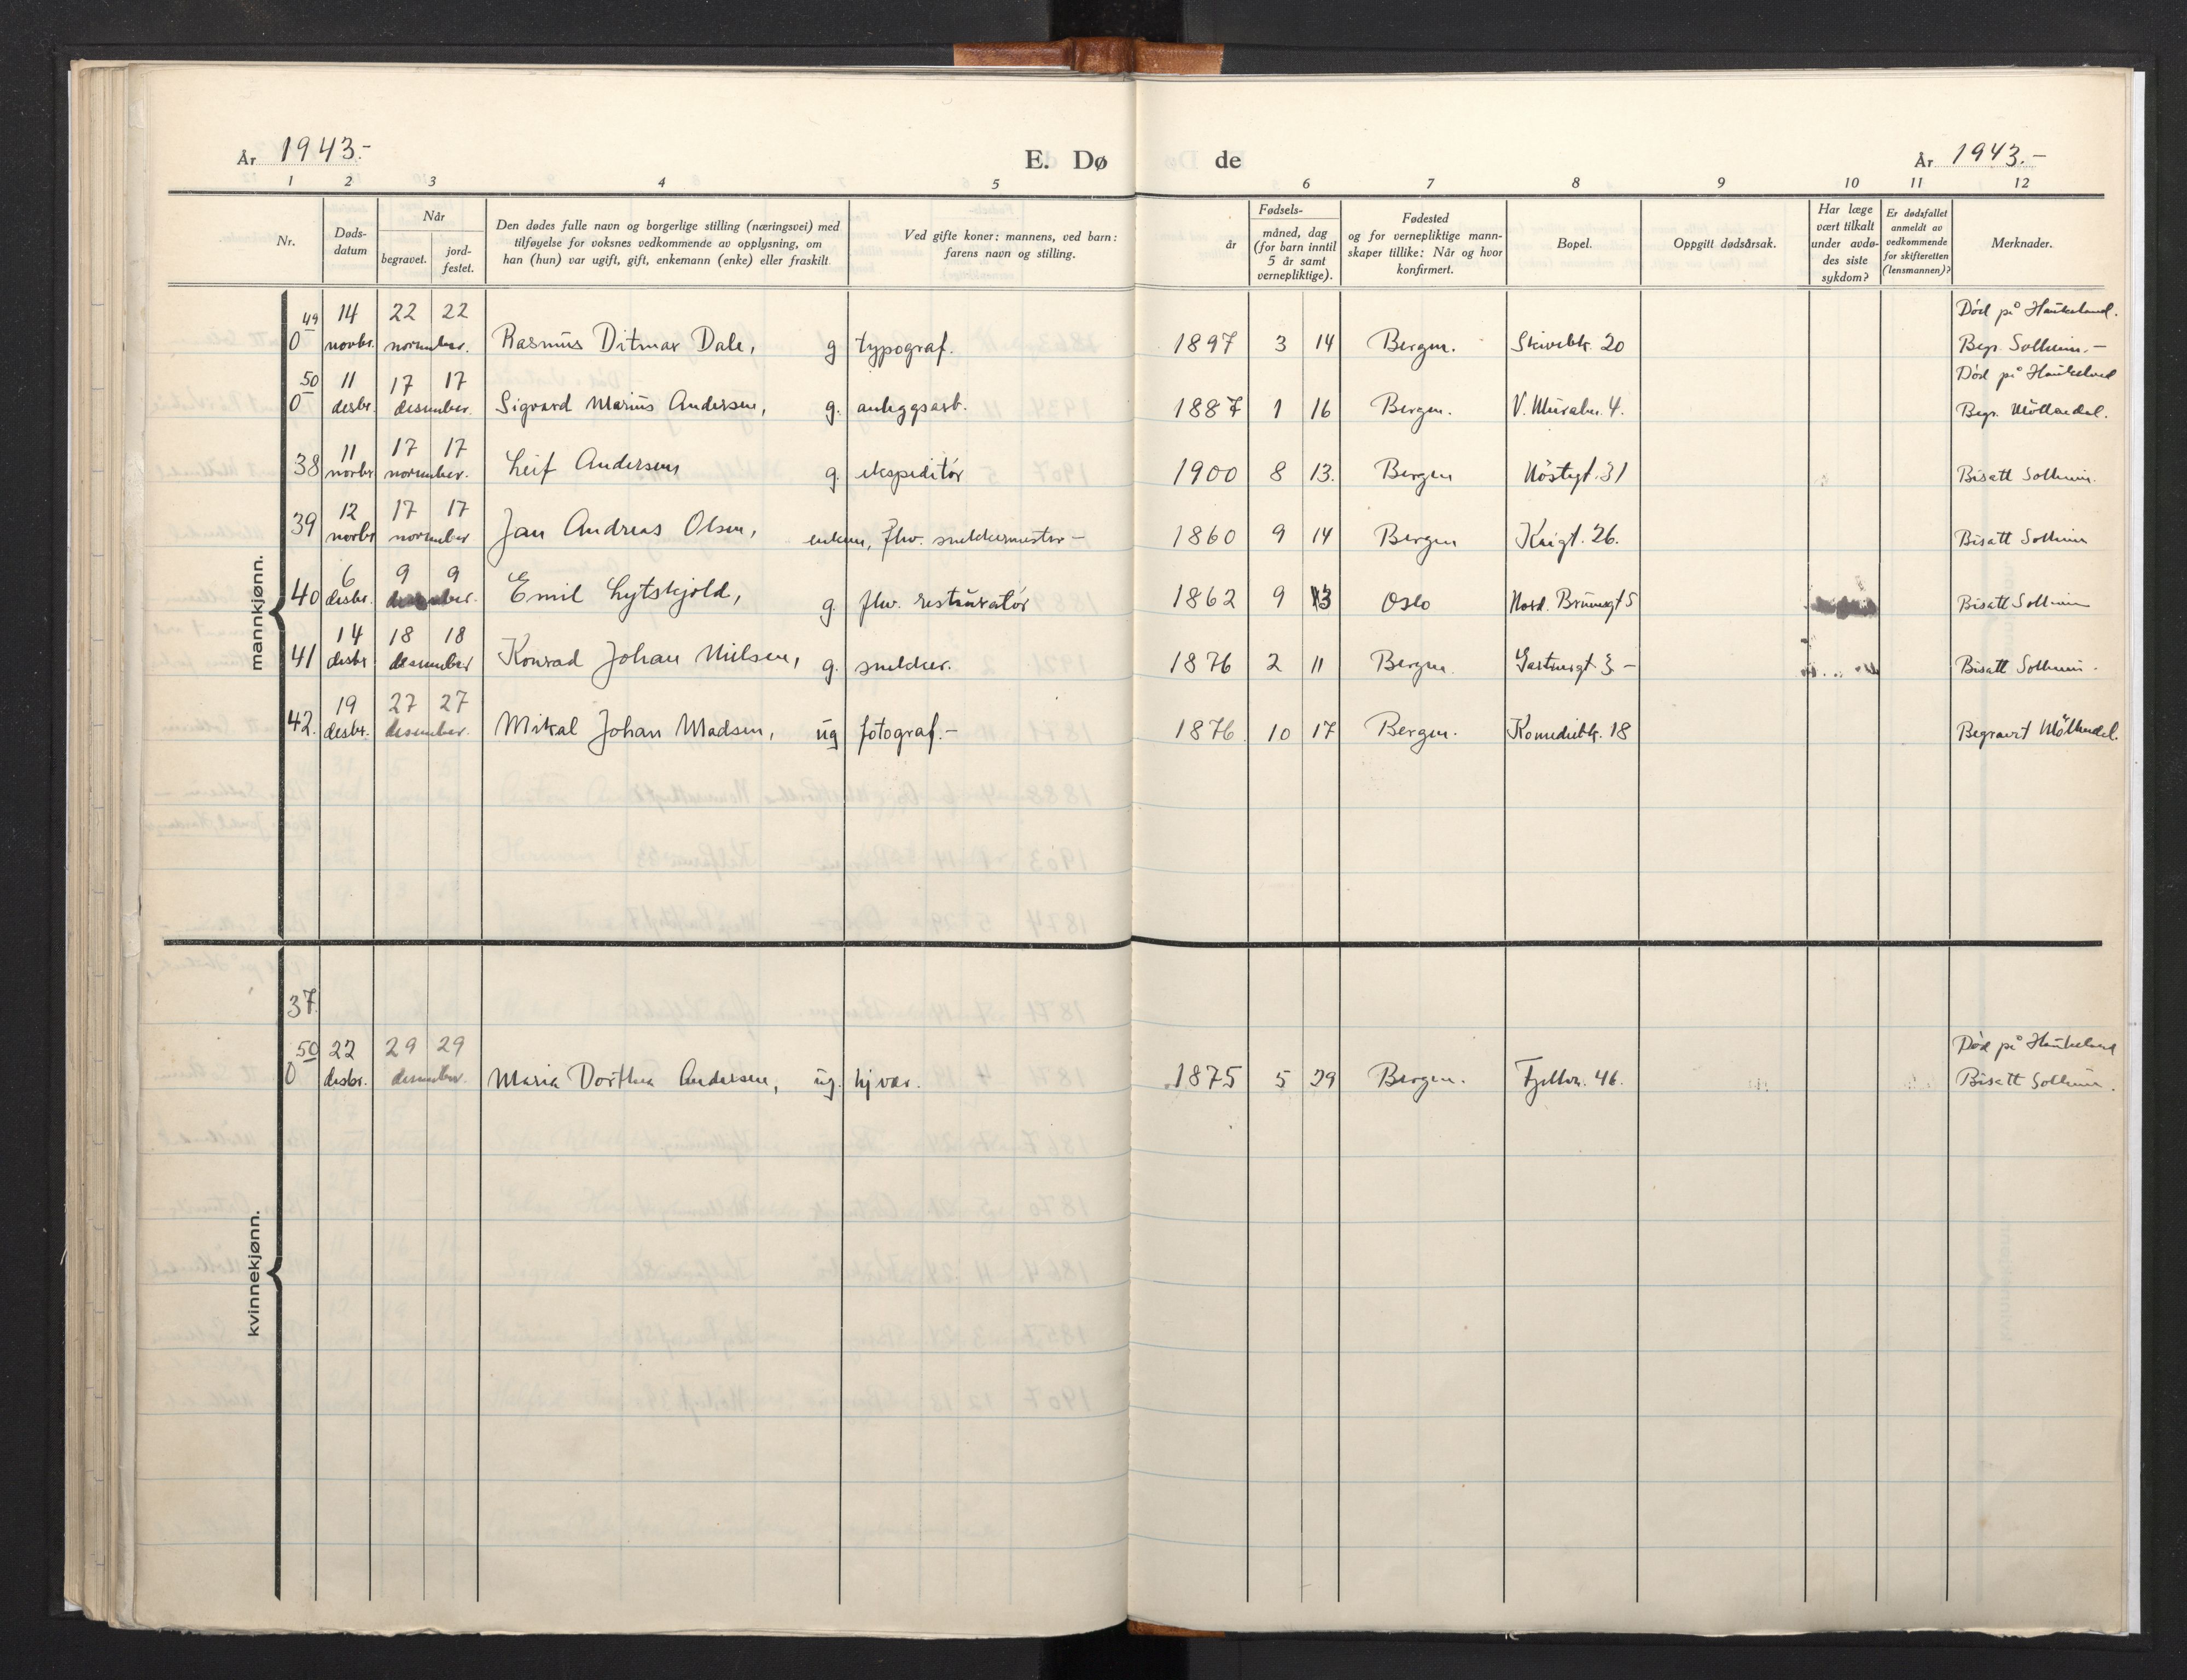 År 1943.-
E. Dø de
År 1943.-
1 2 3 4 5 6 7 8 9 10 11 12
Nr.
Døds-
datum
Når
begravet.
jord-
festet.
Den dødes fulle navn og borgerlige stilling (næringsvei) med
tilføyelse for voksnes vedkommende av opplysning, om
han (hun) var ugift, gift, enkemann (enke) eller fraskilt.
Ved gifte koner: mannens, ved barn:
farens navn og stilling.
år
Fødsels-
måned, dag
(for barn inntil
5 år samt
vernepliktige).
Fødested
og for vernepliktige mann-
skaper tillike: Når og hvor
konfirmert.
Bopel.
Oppgitt dødsårsak.
Har læge
vært tilkalt
under avdø-
des siste
sykdom?
Er dødsfallet
anmeldt av
vedkommende
for skifteretten
(lensmannen)?
Merknader.
mannkjønn.
49 14 22 22 Död på Haukeland.
0 novbr. november. Rasmus Ditmar Dale, g typograf. 1897 3 14 Bergen. Skivebk. 20 Begr. Solheim.-
50 11 17 17 Död på Haukeland
0 desbr. desember. Sigvard Marius Andersen, g. anleggsarb. 1887 1 16 Bergen. V. Muralm. 4. Begr. Möllendal.
11 17 17
38 novbr november. Leif Andersen g. ekspeditör 1900 8 13. Bergen Nöstegt. 31 Bisatt Solheim.
12 17 17
39 novbr november Jan Andreas Olsen, enkem, fhv. snekkermester- 1860 9 14 Bergen Krigt. 26. Bisatt Solheim
6 9 9
40 desbr. desember. Emil Lytskjold, g. fhv. restauratör 1862 9 13 Oslo Nord. Brunegt 5 Bisatt Solheim
14 18 18
41 desbr desember Konrad Johan Nilsen, g. snekker. 1876 2 11 Bergen. 3- Bisatt Solheim.
19 27 27
42. desbr. desember. Mikal Johan Madsen, ug fotograf.- 1876. 10 17 Bergen. Komediebk. 18 Begravet Möllendal.
kvinnekjønn.
37.
50 22 29 29 Död på Haukeland
0 desbr. desember. Maria Dorthea Andersen, ug. hj vær. 1875 5 29 Bergen. Fjellvn. 46. Bisatt Solheim.